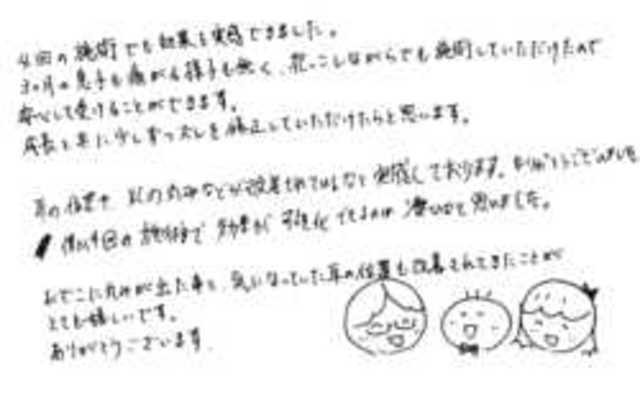 4回の施術でも効果を実感できました。
3ヶ月の息子も痛がる様子も無く、抱っこしながらでも施術していただけたので
安心して受けることができます。
成長と共に少しずつズレを修正していただけたらと思います。
耳の位置や、おでこの丸みなどが改善されているなと実感しております。ありがとうございました
僅か4回の施術で効果が可視化できるのは凄いなと思いました。
おでこに丸みが出た事と、気になっていた耳の位置も改善されてきたことが
とても嬉しいです。
ありがとうございます。